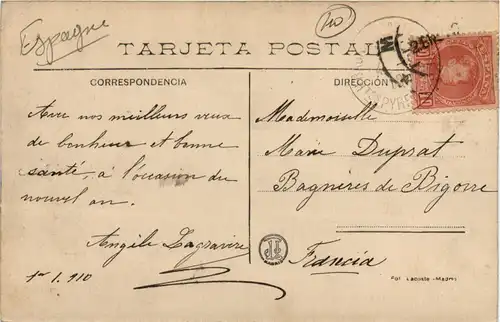 Espagne
40
TARJETA POSTAL
CORRESPONDENCIA
DIRECCIÓN
Avec nos meilleurs vœux
de bonheur et bonne
santé, à l'occasion du
nouvel an.
Angèle Lagravère
1er 1. 910
Mademoiselle
Marie Duprat
Bagnères de Bigorre
Francia
Fot. Lacoste - Madrid